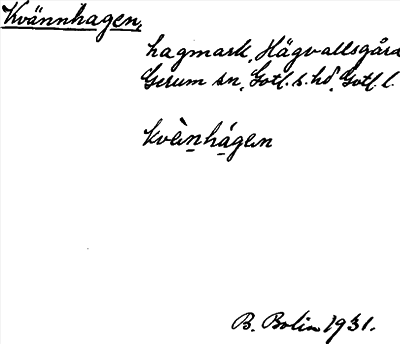 Kvännhagen,
hagmark, Hägvallsgård
Gerum sn, Gotl. s. hd, Gotl. l.
kvènhágen
B. Bolin 1931.